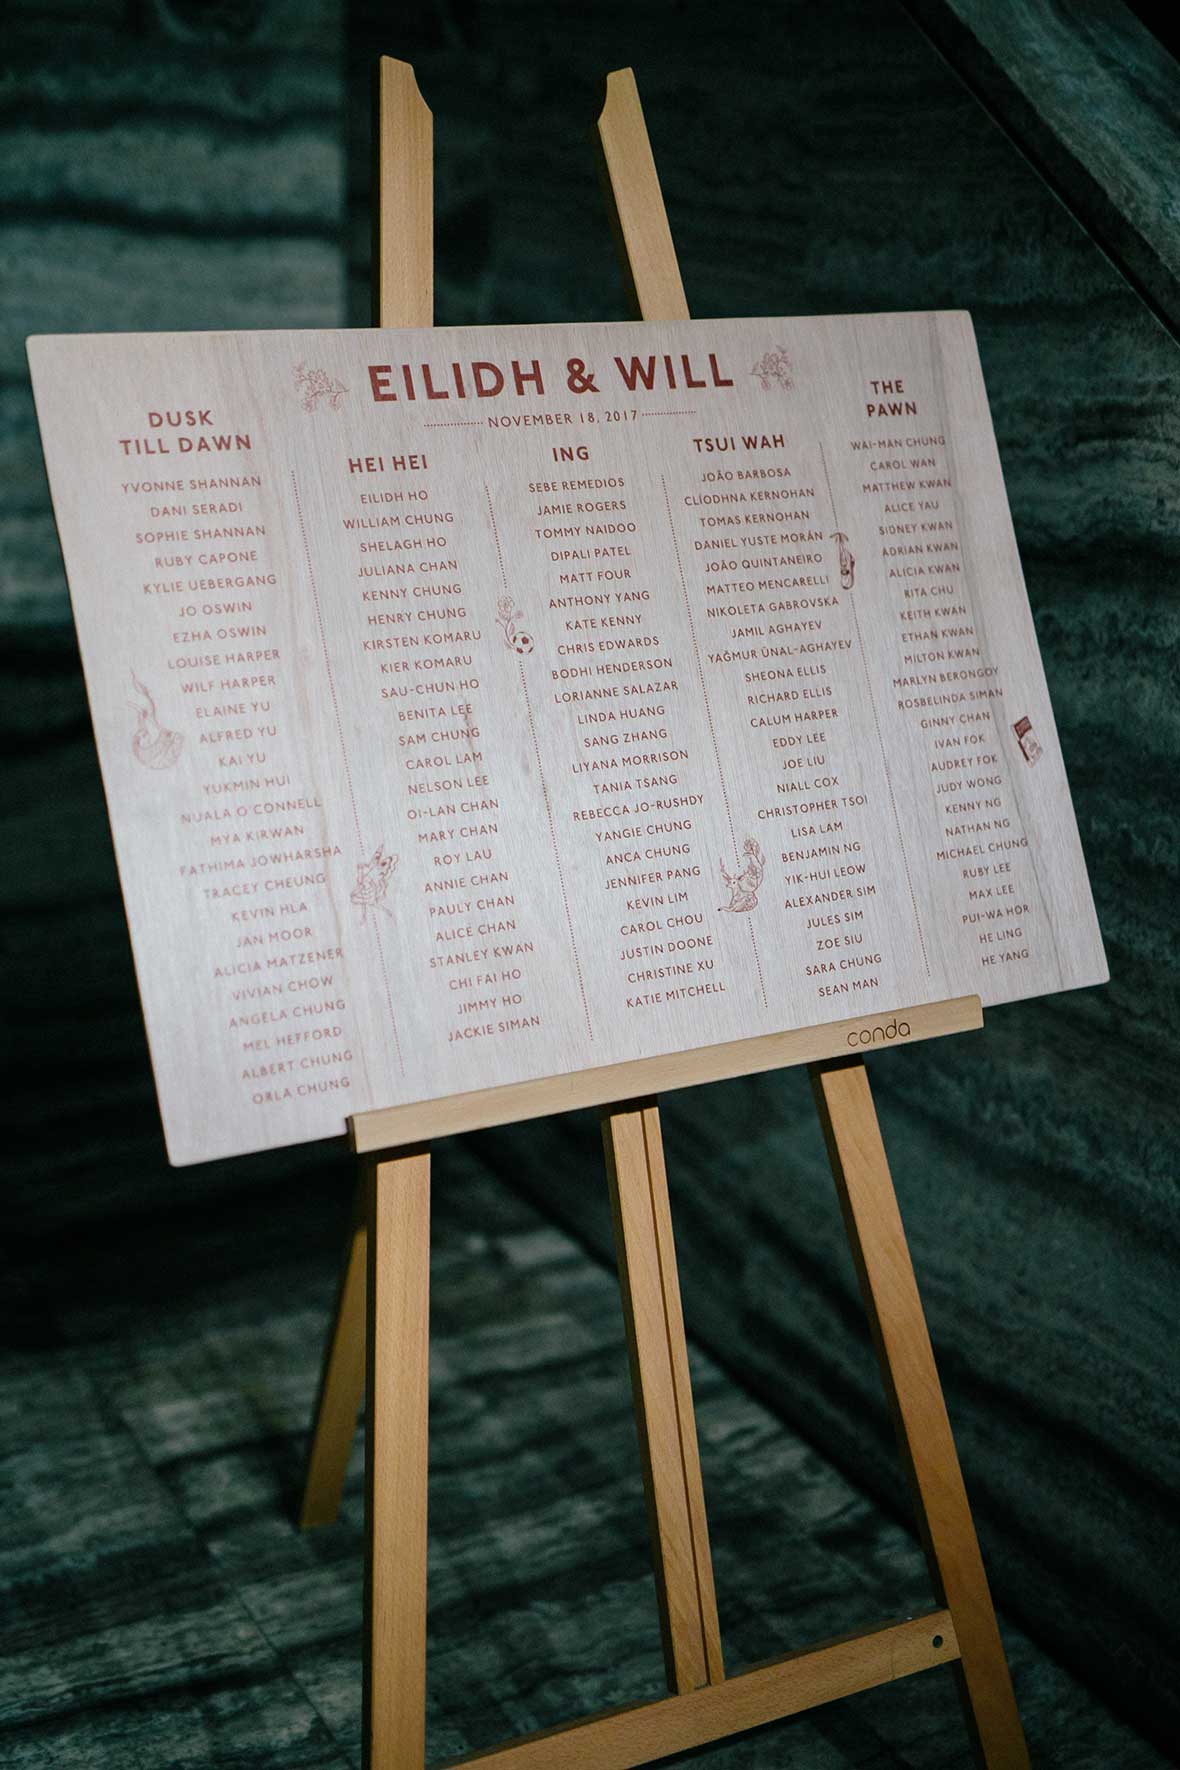 EILIDH & WILL
NOVEMBER 18, 2017
DUSK
TILL DAWN
YVONNE SHANNAN
DANI SERADI
SOPHIE SHANNAN
RUBY CAPONE
KYLIE UEBERGANG
JO OSWIN
EZHA OSWIN
LOUISE HARPER
WILF HARPER
ELAINE YU
ALFRED YU
KAI YU
YUKMIN HUI
NUALA O'CONNELL
MYA KIRWAN
FATHIMA JOWHARSHA
TRACEY CHEUNG
KEVIN HLA
JAN MOOR
ALICIA MATZENER
VIVIAN CHOW
ANGELA CHUNG
MEL HEFFORD
ALBERT CHUNG
ORLA CHUNG
HEI HEI
EILIDH HO
WILLIAM CHUNG
SHELAGH HO
JULIANA CHAN
KENNY CHUNG
HENRY CHUNG
KIRSTEN KOMARU
KIER KOMARU
SAU-CHUN HO
BENITA LEE
SAM CHUNG
CAROL LAM
NELSON LEE
OI-LAN CHAN
MARY CHAN
ROY LAU
ANNIE CHAN
PAULY CHAN
ALICE CHAN
STANLEY KWAN
CHI FAI HO
JIMMY HO
JACKIE SIMAN
ING
SEBE REMEDIOS
JAMIE ROGERS
TOMMY NAIDOO
DIPALI PATEL
MATT FOUR
ANTHONY YANG
KATE KENNY
CHRIS EDWARDS
BODHI HENDERSON
LORIANNE SALAZAR
LINDA HUANG
SANG ZHANG
LIYANA MORRISON
TANIA TSANG
REBECCA JO-RUSHDY
YANGIE CHUNG
ANCA CHUNG
JENNIFER PANG
KEVIN LIM
CAROL CHOU
JUSTIN DOONE
CHRISTINE XU
KATIE MITCHELL
TSUI WAH
JOÃO BARBOSA
CLÍODHNA KERNOHAN
TOMAS KERNOHAN
DANIEL YUSTE MORÁN
JOÃO QUINTANEIRO
MATTEO MENCARELLI
NIKOLETA GABROVSKA
JAMIL AGHAYEV
YAĞMUR ÜNAL-AGHAYEV
SHEONA ELLIS
RICHARD ELLIS
CALUM HARPER
EDDY LEE
JOE LIU
NIALL COX
CHRISTOPHER TSOI
LISA LAM
BENJAMIN NG
YIK-HUI LEOW
ALEXANDER SIM
JULES SIM
ZOE SIU
SARA CHUNG
SEAN MAN
THE
PAWN
WAI-MAN CHUNG
CAROL WAN
MATTHEW KWAN
ALICE YAU
SIDNEY KWAN
ADRIAN KWAN
ALICIA KWAN
RITA CHU
KEITH KWAN
ETHAN KWAN
MILTON KWAN
MARLYN BERONGOY
ROSBELINDA SIMAN
GINNY CHAN
IVAN FOK
AUDREY FOK
JUDY WONG
KENNY NG
NATHAN NG
MICHAEL CHUNG
RUBY LEE
MAX LEE
PUI-WA HOR
HE LING
HE YANG
conda